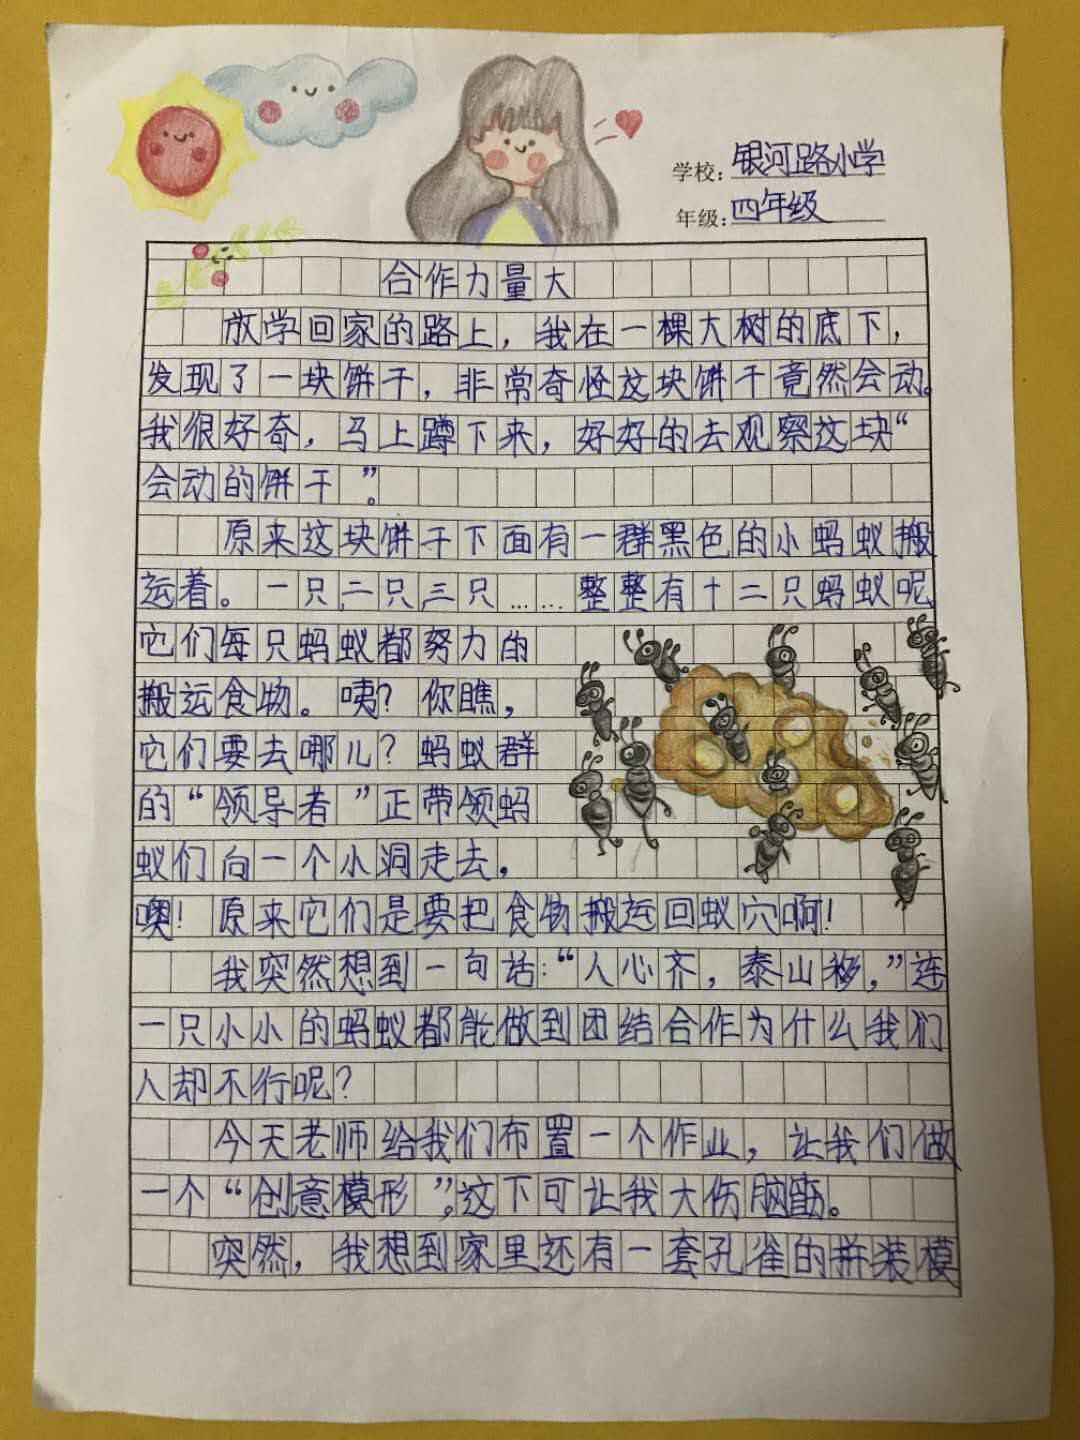 学校：银河路小学
年级：四年级
合作力量大
放学回家的路上，我在一棵大树的底下，
发现了一块饼干，非常奇怪这块饼干竟然会动。
我很好奇，马上蹲下来，好好的去观察这块“
会动的饼干”。
原来这块饼干下面有一群黑色的小蚂蚁搬
运着。一只，二只，三只……整整有十二只蚂蚁呢
它们每只蚂蚁都努力的
搬运食物。咦？你瞧，
它们要去哪儿？蚂蚁群
的“领导者”正带领蚂
蚁们向一个小洞走去，
噢！原来它们是要把食物搬运回蚁穴啊！
我突然想到一句话：“人心齐，泰山移，”连
一只小小的蚂蚁都能做到团结合作为什么我们
人却不行呢？
今天老师给我们布置一个作业，让我们做
一个“创意模形”，这下可让我大伤脑筋。
突然，我想到家里还有一套孔雀的拼装模